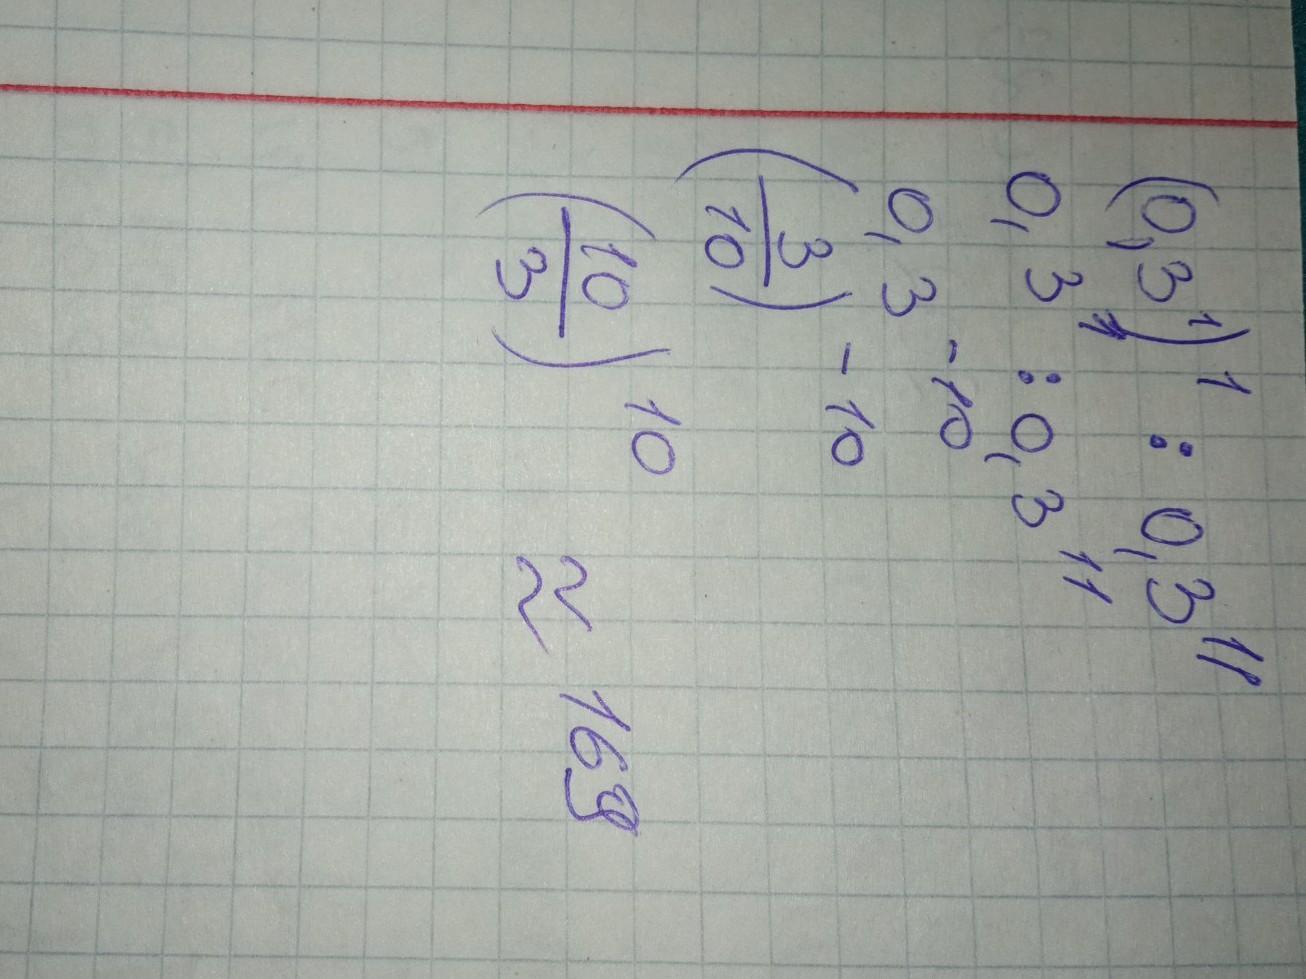 (0,3¹)¹ : 0,3¹¹
0,3¹ : 0,3¹¹
0,3⁻¹⁰
(3/10)⁻¹⁰
(10/3)¹⁰ ≈ 169